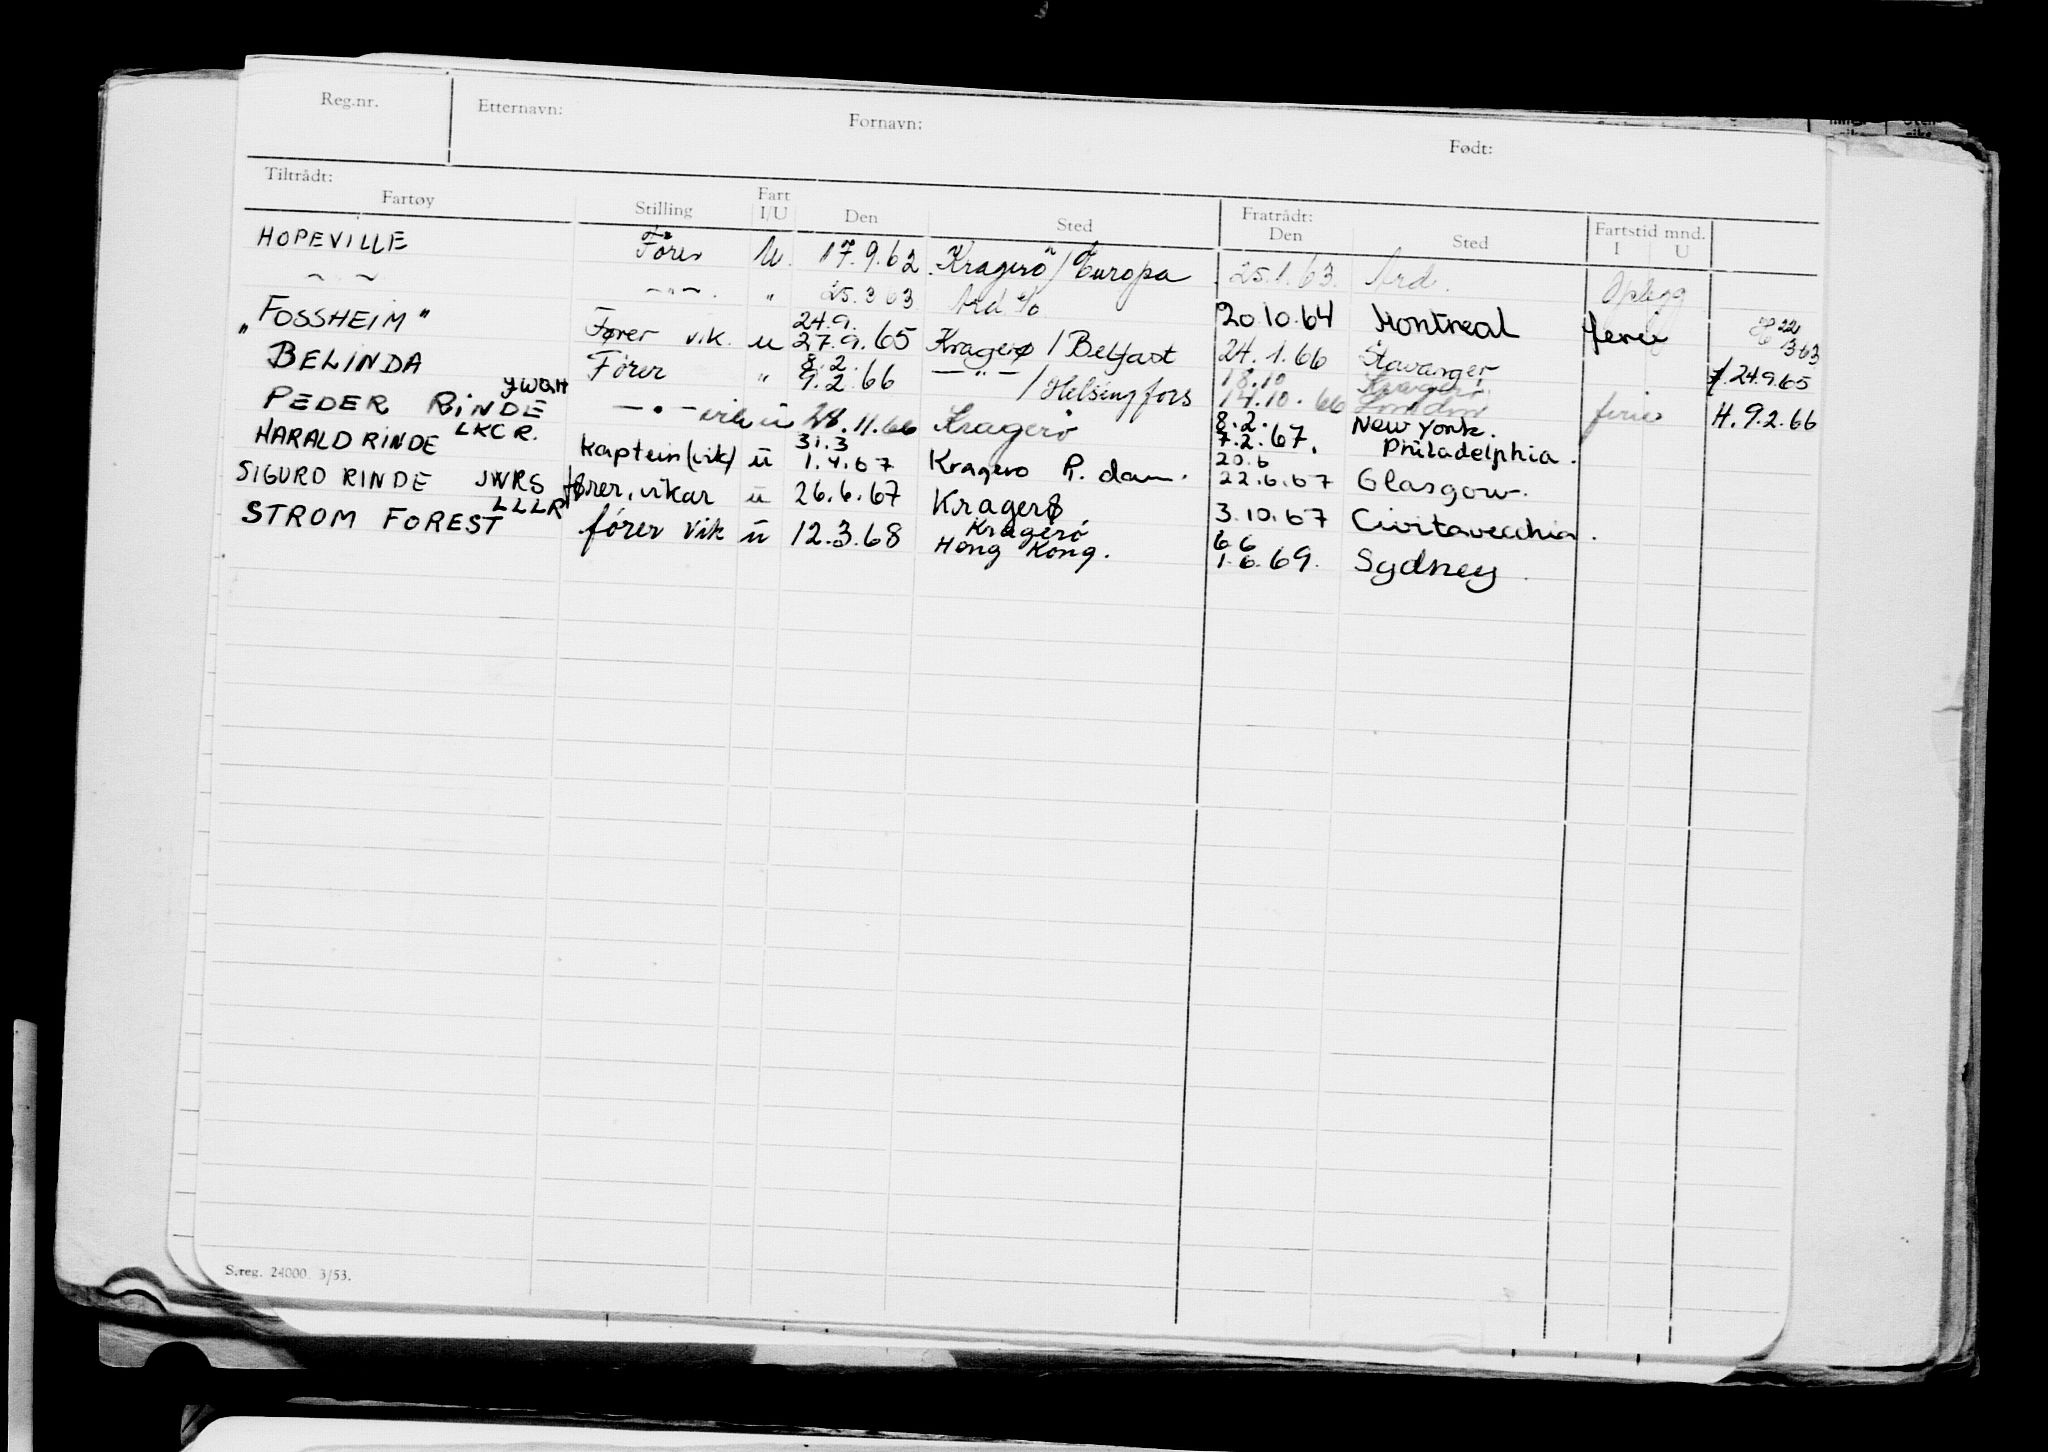 Reg.nr. Etternavn: Fornavn: Født:
Tiltrådt: Fratrådt:
Fartøy Stilling Fart I/U Den Sted Den Sted Fartstid mnd. I U
HOPEVILLE Fører U. 17.9.62 Kragerö / Europa 25.1.63. Ard. Oplegg
~ ~ —„—. " 25.3 63 Ard 20.10.64 Montreal ferie 22/3 63
„FOSSHEIM" Fører vik. u 24.9. 27.9.65 Kragerø / Belfast 24.1.66 Stavanger 24.9.65
BELINDA Förer " 8.2. 9.2.66 —„— / Helsingfors 18.10 14.10.66 Kragerö London ferie H. 9.2.66
PEDER RINDE JWQH —•— vik u 28.11.66 Kragerö 8.2. 7.2.67. New York. Philadelphia.
HARALD RINDE LKCR. kaptein (vik) u 31.3 1.4.67 Kragerø R. dam. 20.6 22.6.67 Glasgow.
SIGURD RINDE JWRS fører, vikar u 26.6.67 Kragerø 3.10.67 Civitavecchia.
STROM FOREST LLLR fórer vik u 12.3.68 Kragerö Hong Kong. 6 6 1.6.69. Sydney.
S.reg. 24000. 3/53.